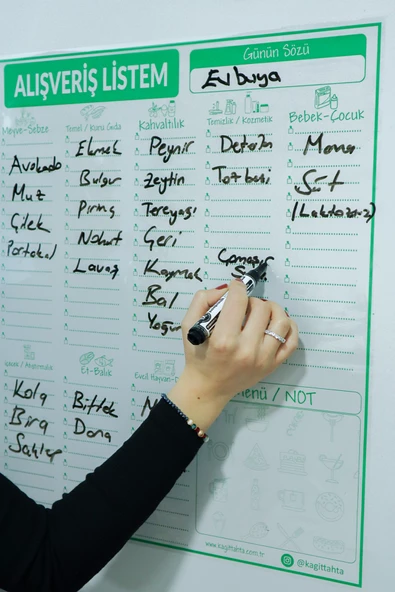 ALIŞVERİŞ LİSTEM
Günün Sözü
Ev boya
Meyve-Sebze
Avokado
Muz
Çilek
Portakal
Temel / Kuru Gıda
Ekmek
Bulgur
Pirinç
Nohut
Lavaş
Kahvaltılık
Peynir
Zeytin
Tereyağı
Kaymak
Bal
Temizlik / Kozmetik
Deterjan
Toz bezi
Çamaşır
Bebek-Çocuk
Mama
Süt
(Laktozsuz)
Kola
Bira
Et-Balık
Biftek
Dana
Evcil Hayvan
/ NOT
www.kagittahta.com.tr
@kagittahta